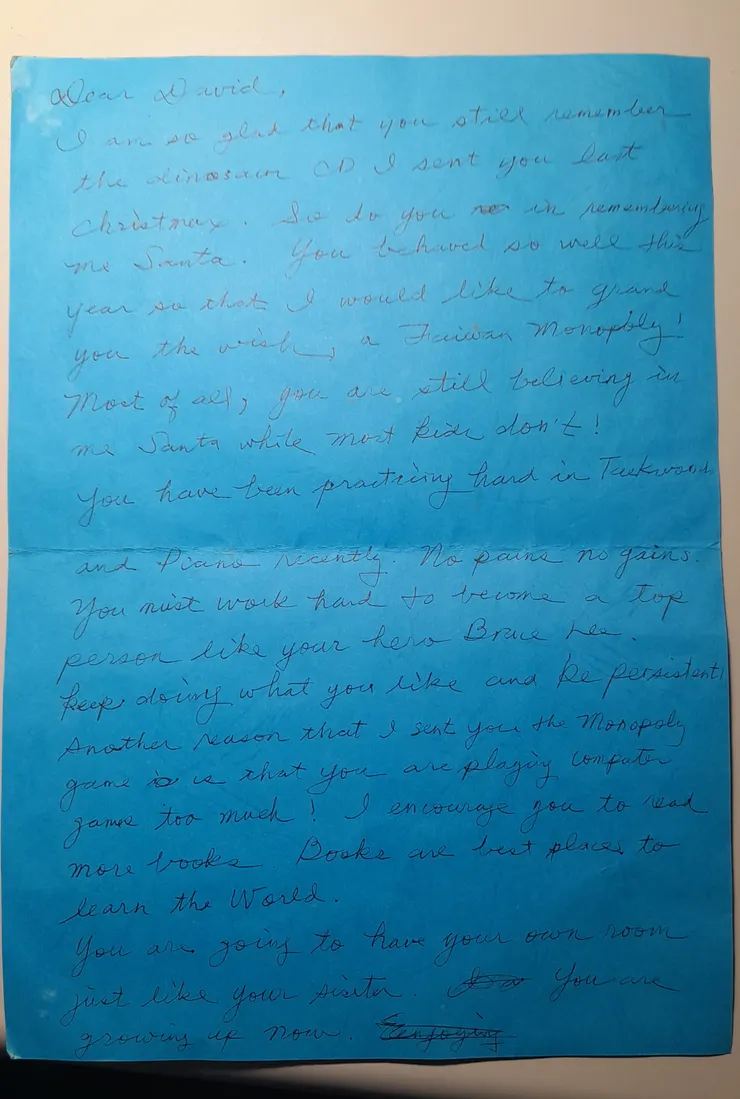 Dear David,
I am so glad that you still remember
the dinosaur CD I sent you last
Christmas. So do you in remembering
me Santa. You behaved so well this
year so that I would like to grand
you the wish, a Taiwan Monopoly!
Most of all, you are still believing in
me Santa while most kids don't!
You have been practicing hard in Taekwondo
and Piano recently. No pains no gains.
You must work hard to become a top
person like your hero Bruce Lee.
Keep doing what you like and be persistent!
Another reason that I sent you the Monopoly
game is that you are playing computer
games too much! I encourage you to read
more books. Books are best places to
learn the World.
You are going to have your own room
just like your sister. You are
growing up now.